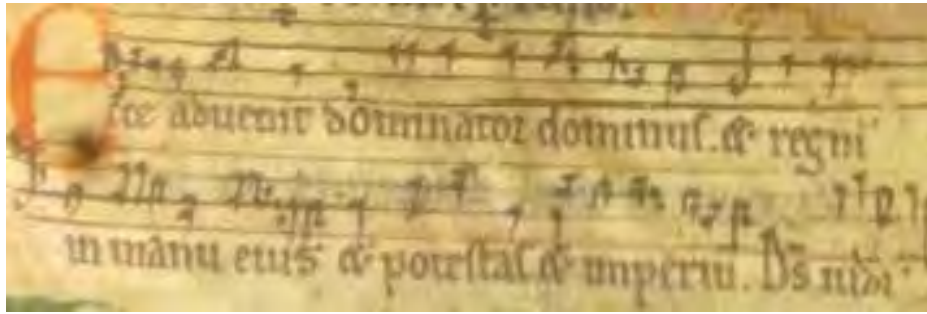 Ecce aduenit dominator dominus. & regnū
in manu eius & potestas & imperiū. Ds